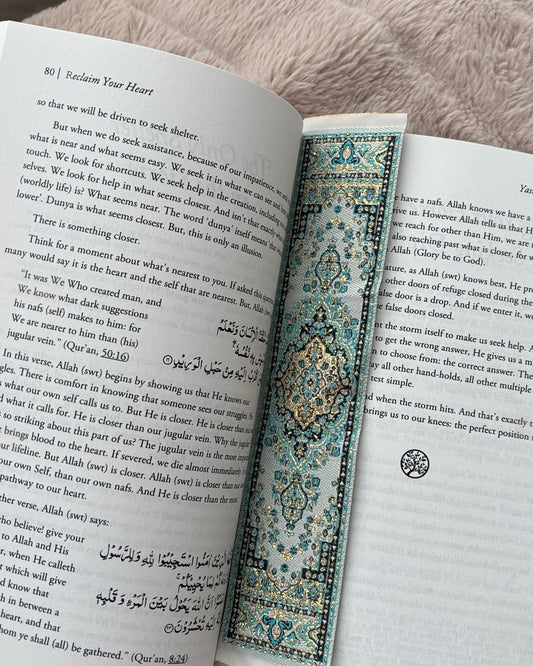 80 | Reclaim Your Heart
so that we will be driven to seek shelter.
But when we do seek assistance, because of our impatience, we
what is near and what seems easy. We seek it in what we can see and
touch. We look for shortcuts. We seek help in the creation, including
selves. We look for help in what seems closest. And isn't that exactly
(worldly life) is? What seems near. The word 'dunya' itself means
lower'. Dunya is what seems closest. But, this is only an illusion.
There is something closer.
Think for a moment about what's nearest to you. If asked this
many would say it is the heart and the self that are nearest. But, Allah
"It was We Who created man, and
We know what dark suggestions
his nafs (self) makes to him: for
We are nearer to him than (his)
jugular vein." (Qur'an, 50:16)
الْإِنْسَانَ وَنَعْلَمُ
بِهِ نَفْسُهُ
أَقْرَبُ إِلَيْهِ مِنْ حَبْلِ الْوَرِيدِ
In this verse, Allah (swt) begins by showing us that He knows our
struggles. There is comfort in knowing that someone sees our struggles.
what our own self calls us to. But He is closer. He is closer than our
and what it calls for. He is closer than our jugular vein. Why the jugular
so striking about this part of us? The jugular vein is the most
brings blood to the heart. If severed, we die almost immediately
our lifeline. But Allah (swt) is closer. Allah (swt) is closer
our own Self, than our own nafs. And He is closer than the most
pathway to our heart.
verse, Allah (swt) says:
who believe! give your
to Allah and His
when He calleth
which will give
and know that
in between a
heart, and that
whom ye shall (all) be gathered." (Qur'an, 8:24)
الَّذِينَ آمَنُوا اسْتَجِيبُوا لِلَّهِ وَلِلرَّسُولِ
لِمَا يُحْيِيكُمْ
أَنَّ اللَّهَ يَحُولُ بَيْنَ الْمَرْءِ وَقَلْبِهِ
إِلَيْهِ تُحْشَرُونَ
Yas
have a nafs. Allah knows we have a
drive us. However Allah tells us that H
we reach for other than Him, we are
also reaching past what is closer, for
Allah (Glory be to God).
nature, as Allah (swt) knows best, He pr
other doors of refuge closed during the
false door is a drop. And if we enter it, w
false doors closed.
that storm itself to make us seek help. A
to get the wrong answer, He gives us a m
to choose from: the correct answer. The
all other hand-holds, all other multiple
simple.
when the storm hits. And that's exactly t
brings us to our knees: the perfect position